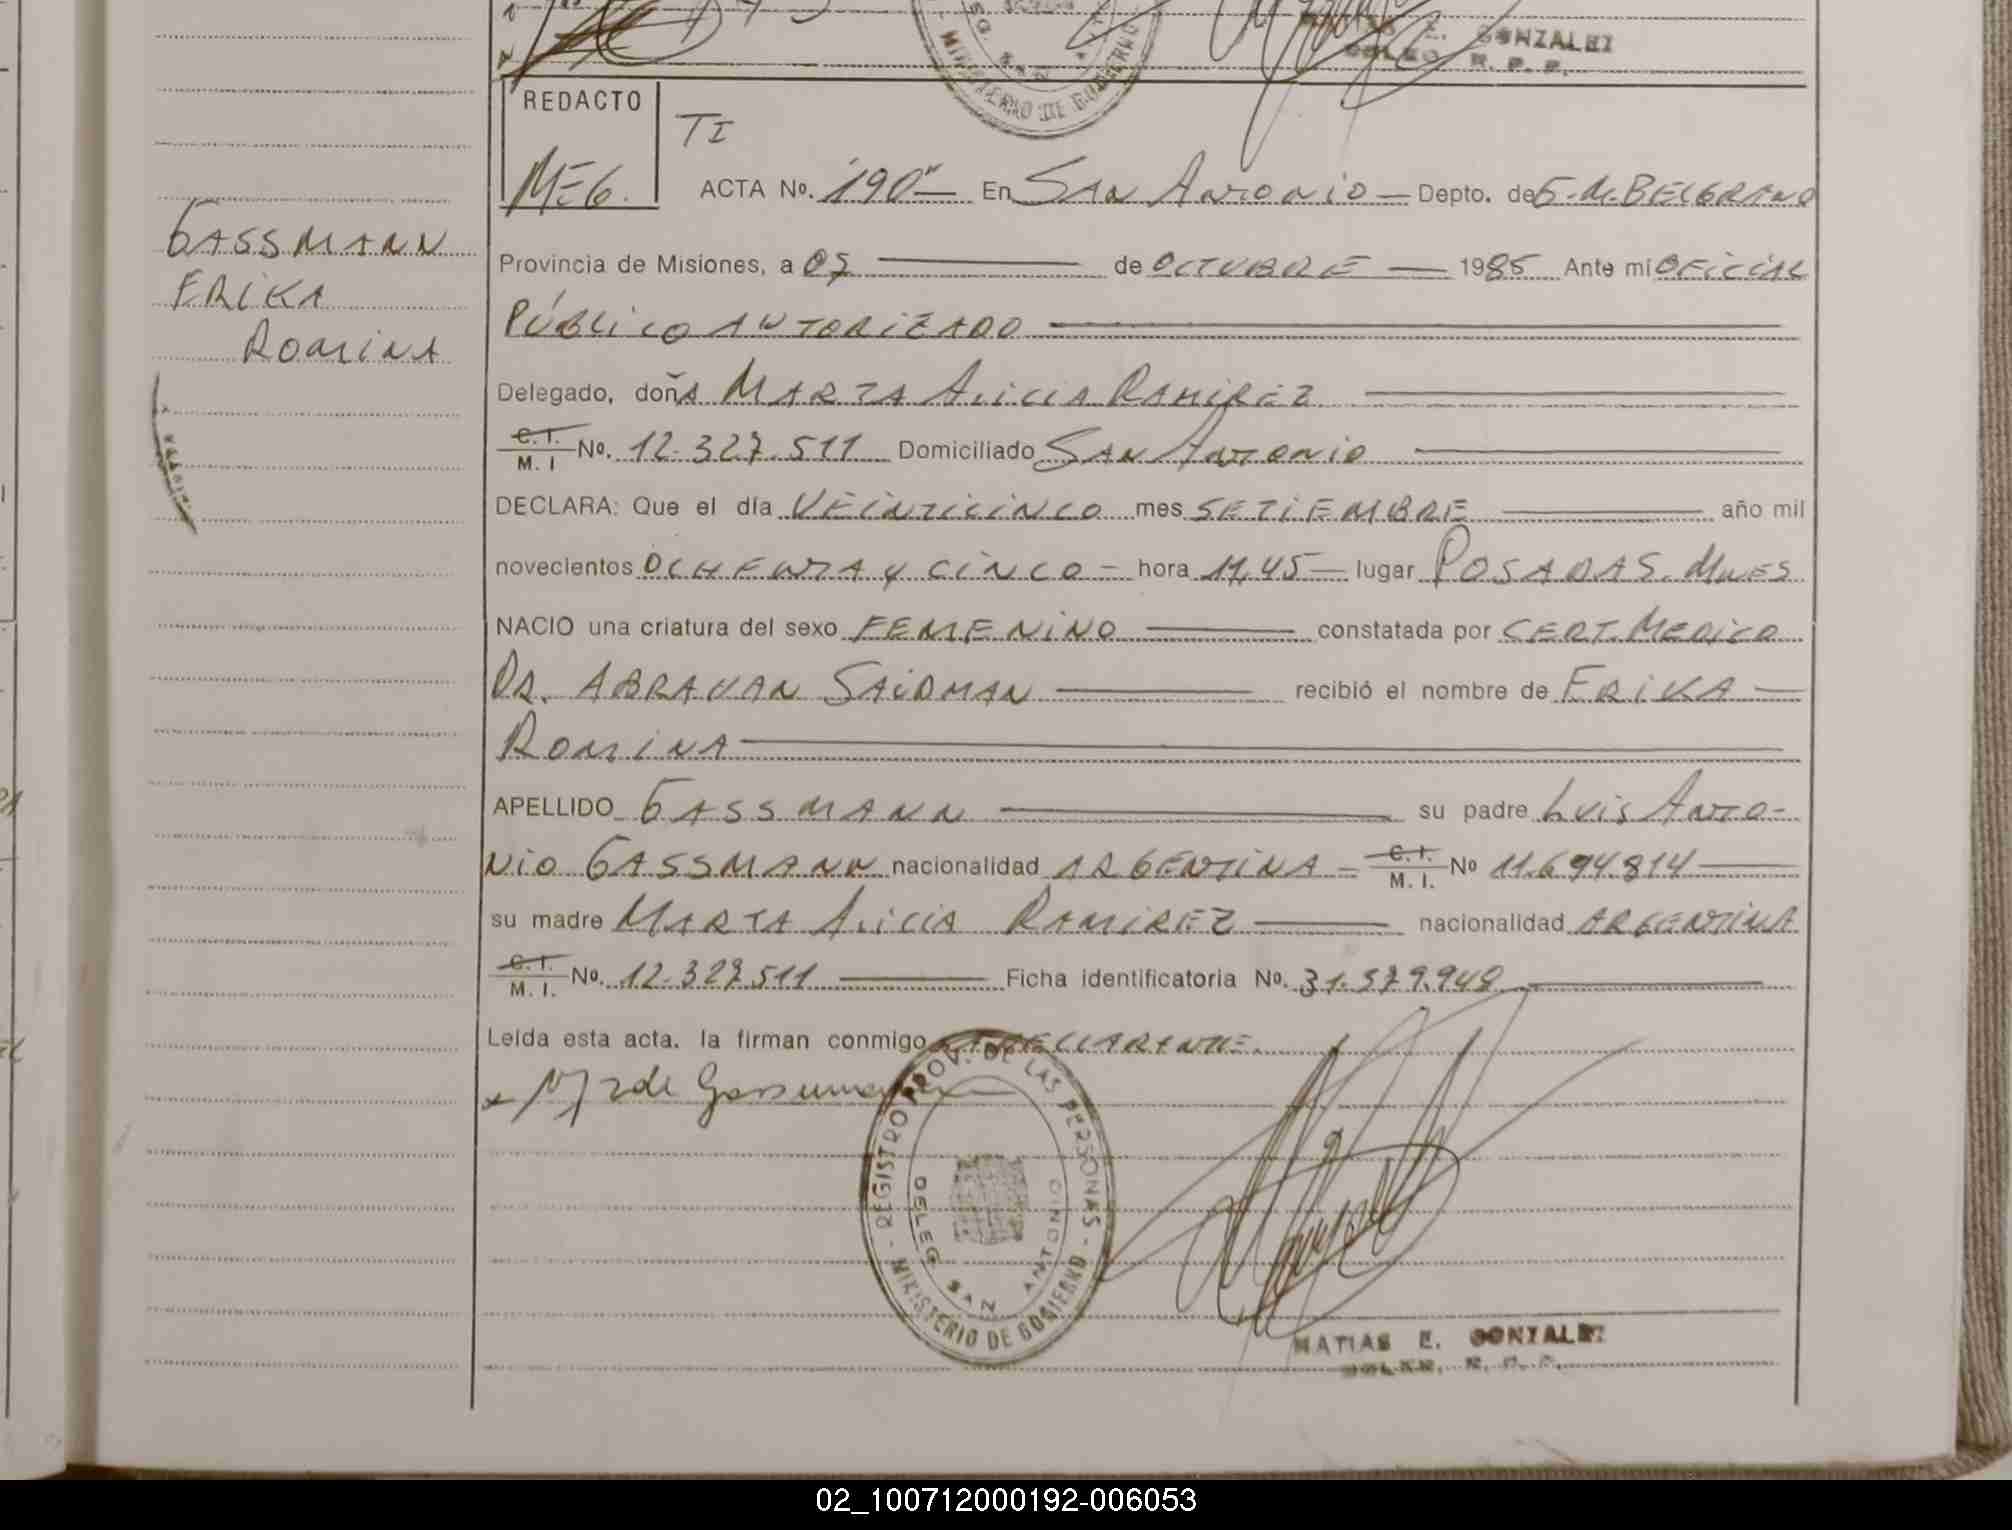 E. GONZALEZ
R. P. P.
MINISTERIO DE GOBIERNO
REDACTO
TI
MEG.
ACTA Nº. 190"— En SAN ANTONIO — Depto. de G.M.BELGRANO
GASSMANN
ERIKA
ROMINA
Provincia de Misiones, a 07 — de OCTUBRE — 1985 Ante mi OFICIAL
PÚBLICO AUTORIZADO —
Delegado, doñA MARTA ALICIA RAMIREZ —
C.I. / M. I Nº. 12.327.511 Domiciliado SAN ANTONIO —
DECLARA: Que el día VEINTICINCO mes SETIEMBRE — año mil
novecientos OCHENTA Y CINCO — hora 11,45 — lugar POSADAS. MNES
NACIO una criatura del sexo FEMENINO — constatada por CERT. MEDICO
DR. ABRAHAN SAIDMAN — recibió el nombre de ERIKA —
ROMINA —
APELLIDO GASSMANN — su padre LUIS ANTO-
NIO GASSMANN nacionalidad ARGENTINA — C.I. / M. I. Nº 11.694.814 —
su madre MARTA ALICIA RAMIREZ — nacionalidad ARGENTINA
C.I. / M. I. Nº. 12.327.511 — Ficha identificatoria Nº. 31.579.948 —
Leída esta acta. la firman conmigo LA DECLARANTE.
x M R de Gassmann
REGISTRO PROV. DE LAS PERSONAS - MINISTERIO DE GOBIERNO -
DELEG. SAN ANTONIO
MATIAS E. GONZALEZ
02_100712000192-006053